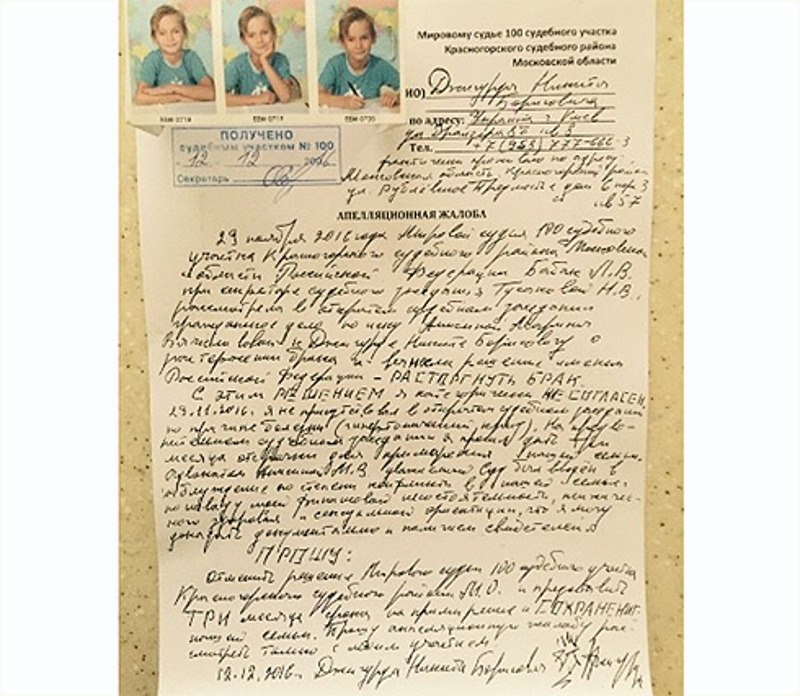 ЕВИ 0718 ЕВИ 0719 ЕВИ 0720
Мировому судье 100 судебного участка
Красногорского судебного района
Московской области
ИО) Джигурда Никита
Борисович
по адресу: Украина г. Киев
ул
Тел. +7 (953) 777-666-3
ПОЛУЧЕНО
судебным участком № 100
12 12 2016
Секретарь
фактически проживаю по адресу:
Московская область, Красногорский район
ул. Рублевское Предместье дом 6 кор 3
кв 57
АПЕЛЛЯЦИОННАЯ ЖАЛОБА
29 ноября 2016 года Мировой судья 100 судебного
участка Красногорского судебного района Московской
области Российской Федерации Л.В.
при секретаре судебного заседания Н.В.
рассмотрела в открытом судебном заседании
гражданское дело по иску Анисиной Марины
Вячеславовны к Джигурде Никите Борисовичу о
расторжении брака и вынесла решение именем
Российской Федерации – РАСТОРГНУТЬ БРАК.
С этим РЕШЕНИЕМ я категорически НЕ СОГЛАСЕН.
29.11.2016г. я не присутствовал в открытом судебном заседании
по причине болезни (гипертонический криз). На
судебном заседании я просил дать три
месяца отсрочки для примирения нашей семьи.
Адвокатом Анисиной М.В. уважаемый Суд был введён в
заблуждение по степени конфликта в нашей семье,
по поводу моей финансовой несостоятельности, психичес-
кого здоровья и сексуальной ориентации, что я могу
доказать документально и наличием свидетелей
ПРОШУ:
Отменить решение Мирового судьи 100 судебного участка
Красногорского судебного района М.О. и предоставить
ТРИ месяца срока на примирение и СОХРАНЕНИЕ
нашей семьи. Прошу апелляционную жалобу рас-
смотреть только с моим участием.
12.12.2016г. Джигурда Никита Борисович